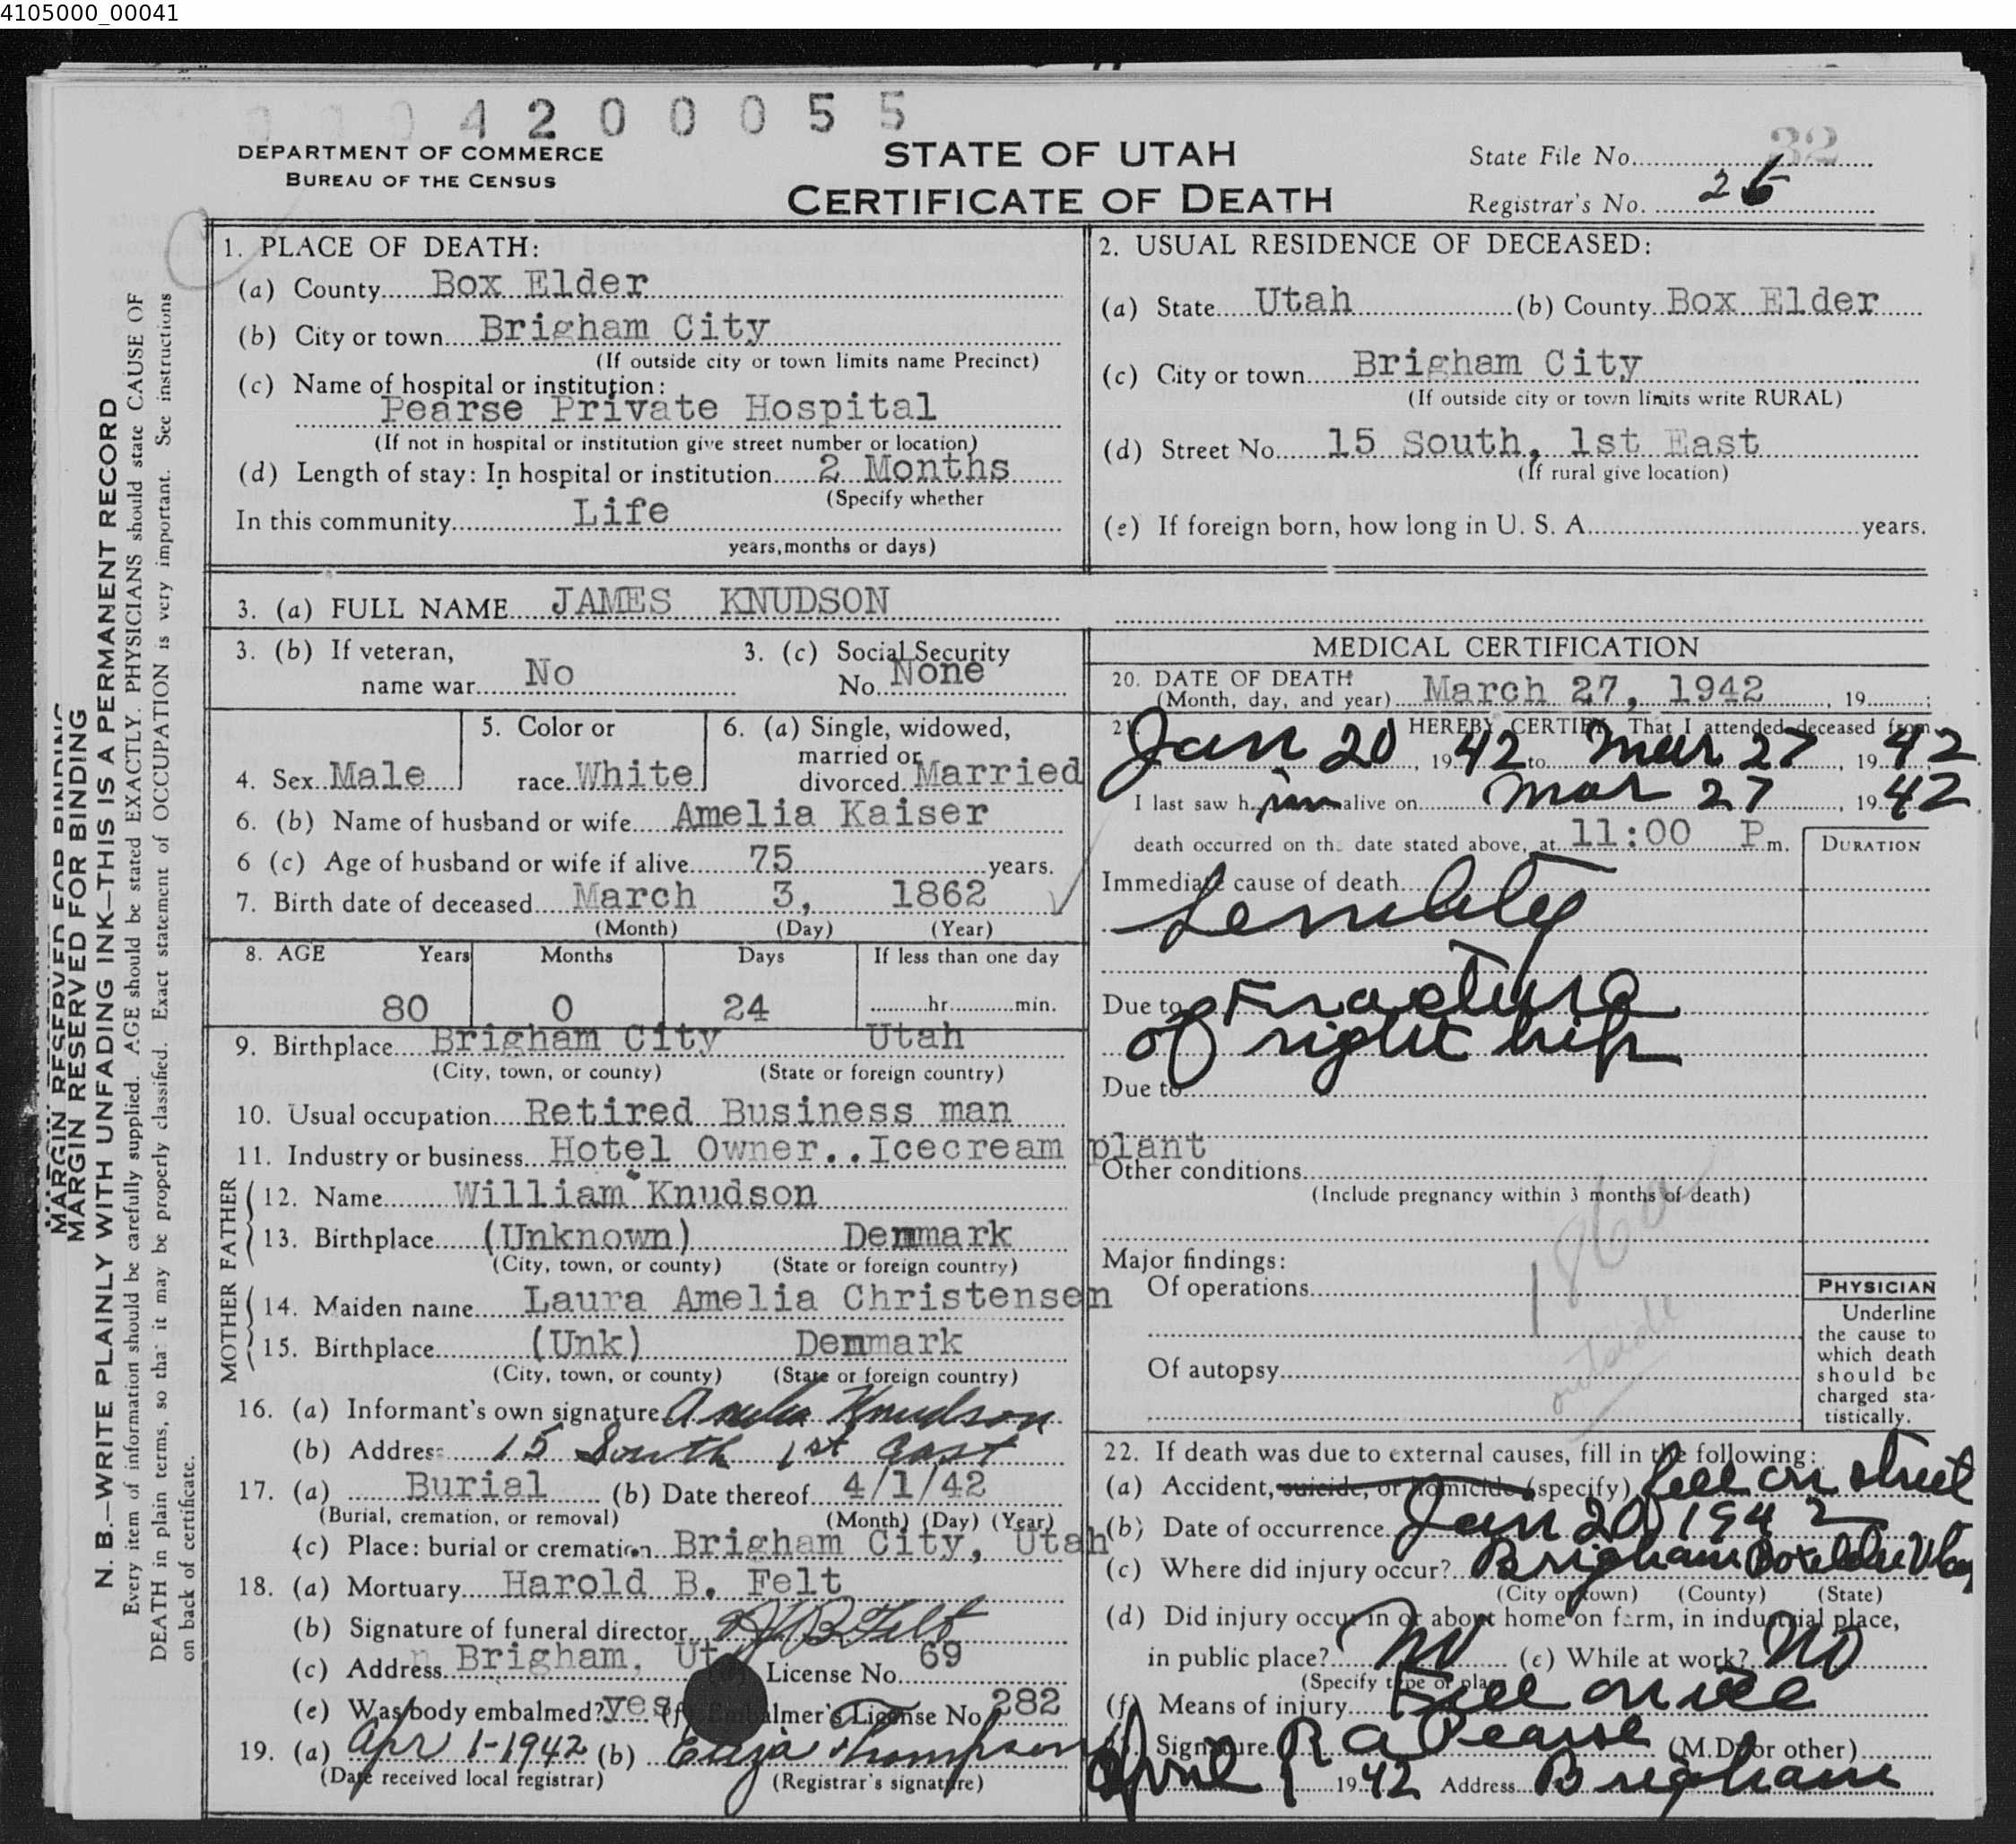 4105000_00041
0 0 0 4 2 0 0 0 5 5
DEPARTMENT OF COMMERCE
BUREAU OF THE CENSUS
STATE OF UTAH
CERTIFICATE OF DEATH
State File No. 32
Registrar's No. 26
MARGIN RESERVED FOR BINDING
MARGIN RESERVED FOR BINDING
N. B.—WRITE PLAINLY WITH UNFADING INK—THIS IS A PERMANENT RECORD
Every item of information should be carefully supplied. AGE should be stated EXACTLY. PHYSICIANS should state CAUSE OF
DEATH in plain terms, so that it may be properly classified. Exact statement of OCCUPATION is very important. See instructions
on back of certificate.
1. PLACE OF DEATH:
(a) County Box Elder
(b) City or town Brigham City
(If outside city or town limits name Precinct)
(c) Name of hospital or institution:
Pearse Private Hospital
(If not in hospital or institution give street number or location)
(d) Length of stay: In hospital or institution 2 Months
(Specify whether
In this community Life
years, months or days)
2. USUAL RESIDENCE OF DECEASED:
(a) State Utah (b) County Box Elder
(c) City or town Brigham City
(If outside city or town limits write RURAL)
(d) Street No. 15 South, 1st East
(If rural give location)
(e) If foreign born, how long in U. S. A. years.
3. (a) FULL NAME JAMES KNUDSON
3. (b) If veteran,
name war No
3. (c) Social Security
No. None
4. Sex Male
5. Color or
race White
6. (a) Single, widowed,
married or
divorced Married
6. (b) Name of husband or wife Amelia Kaiser
6 (c) Age of husband or wife if alive 75 years.
7. Birth date of deceased March 3, 1862
(Month) (Day) (Year)
8. AGE Years Months Days If less than one day
80 0 24 hr. min.
9. Birthplace Brigham City Utah
(City, town, or county) (State or foreign country)
10. Usual occupation Retired Business man
11. Industry or business Hotel Owner..Icecream plant
FATHER
12. Name William Knudson
13. Birthplace (Unknown) Denmark
(City, town, or county) (State or foreign country)
MOTHER
14. Maiden name Laura Amelia Christensen
15. Birthplace (Unk) Denmark
(City, town, or county) (State or foreign country)
16. (a) Informant's own signature Amelia Knudson
(b) Address 15 South 1st East
17. (a) Burial (b) Date thereof 4/1/42
(Burial, cremation, or removal) (Month) (Day) (Year)
(c) Place: burial or cremation Brigham City, Utah
18. (a) Mortuary Harold B. Felt
(b) Signature of funeral director H B Felt
(c) Address Brigham, Ut License No. 69
(e) Was body embalmed? yes (f) Embalmer's License No 282
19. (a) Apr 1-1942 (b) Eliza Thompson
(Date received local registrar) (Registrar's signature)
MEDICAL CERTIFICATION
20. DATE OF DEATH
(Month, day, and year) March 27, 1942, 19 ;
21. HEREBY CERTIFY, That I attended deceased from
Jan 20, 1942 to Mar 27, 1942
I last saw him alive on Mar 27, 1942
death occurred on the date stated above, at 11:00 P m.
DURATION
Immediate cause of death
Senility
Due to Fracture
of right hip
Due to
Other conditions
(Include pregnancy within 3 months of death)
186a
Major findings:
Of operations
outside
Of autopsy
PHYSICIAN
Underline
the cause to
which death
should be
charged sta-
tistically.
22. If death was due to external causes, fill in the following:
(a) Accident, suicide, or homicide (specify) fell on street
(b) Date of occurrence Jan 20 1942
(c) Where did injury occur? Brigham Boxelder Utah
(City or town) (County) (State)
(d) Did injury occur in or about home on farm, in industrial place,
in public place? No (e) While at work? No
(Specify type of place)
(f) Means of injury Fell on ice
Signature R A Pearse (M.D. or other)
April 1 1942 Address Brigham